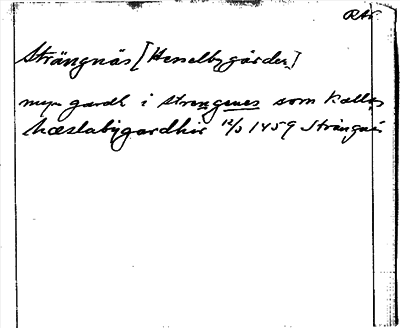 RAp
Strängnäs [Hesselbygården]
myn gardh i strengenes som kallas
hæslabygardhir 12/3 1459 Strängnäs